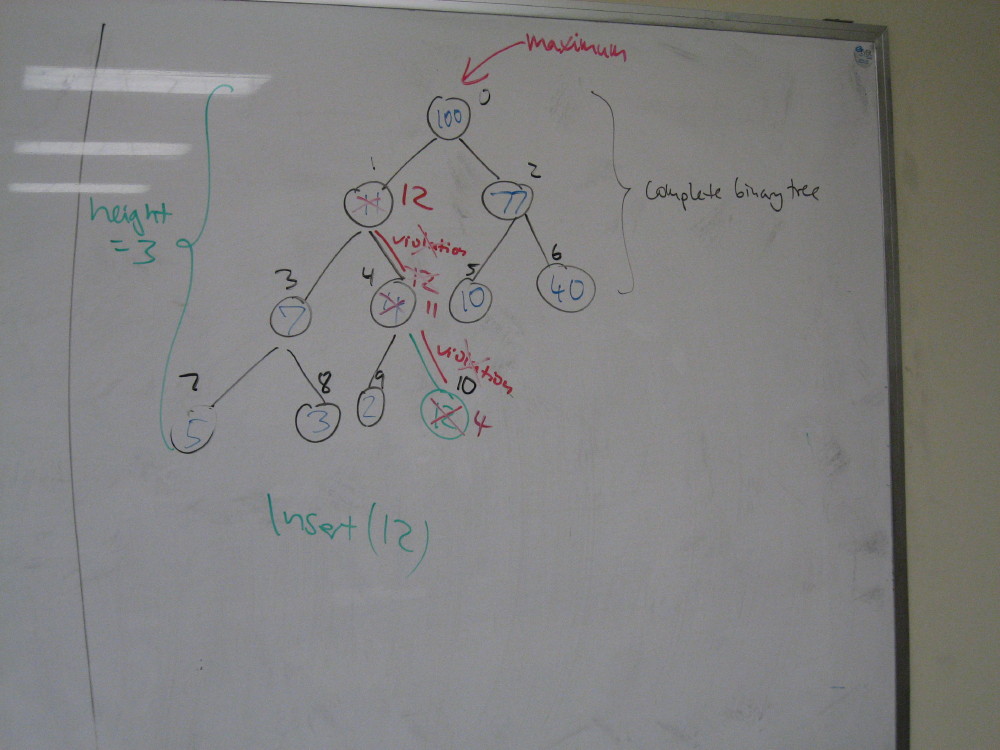 maximum
0
100
1
2
12
77
complete binary tree
height
= 3
violation
3
4
12
5
6
7
11
10
40
violation
7
8
9
10
5
3
2
12
4
Insert (12)